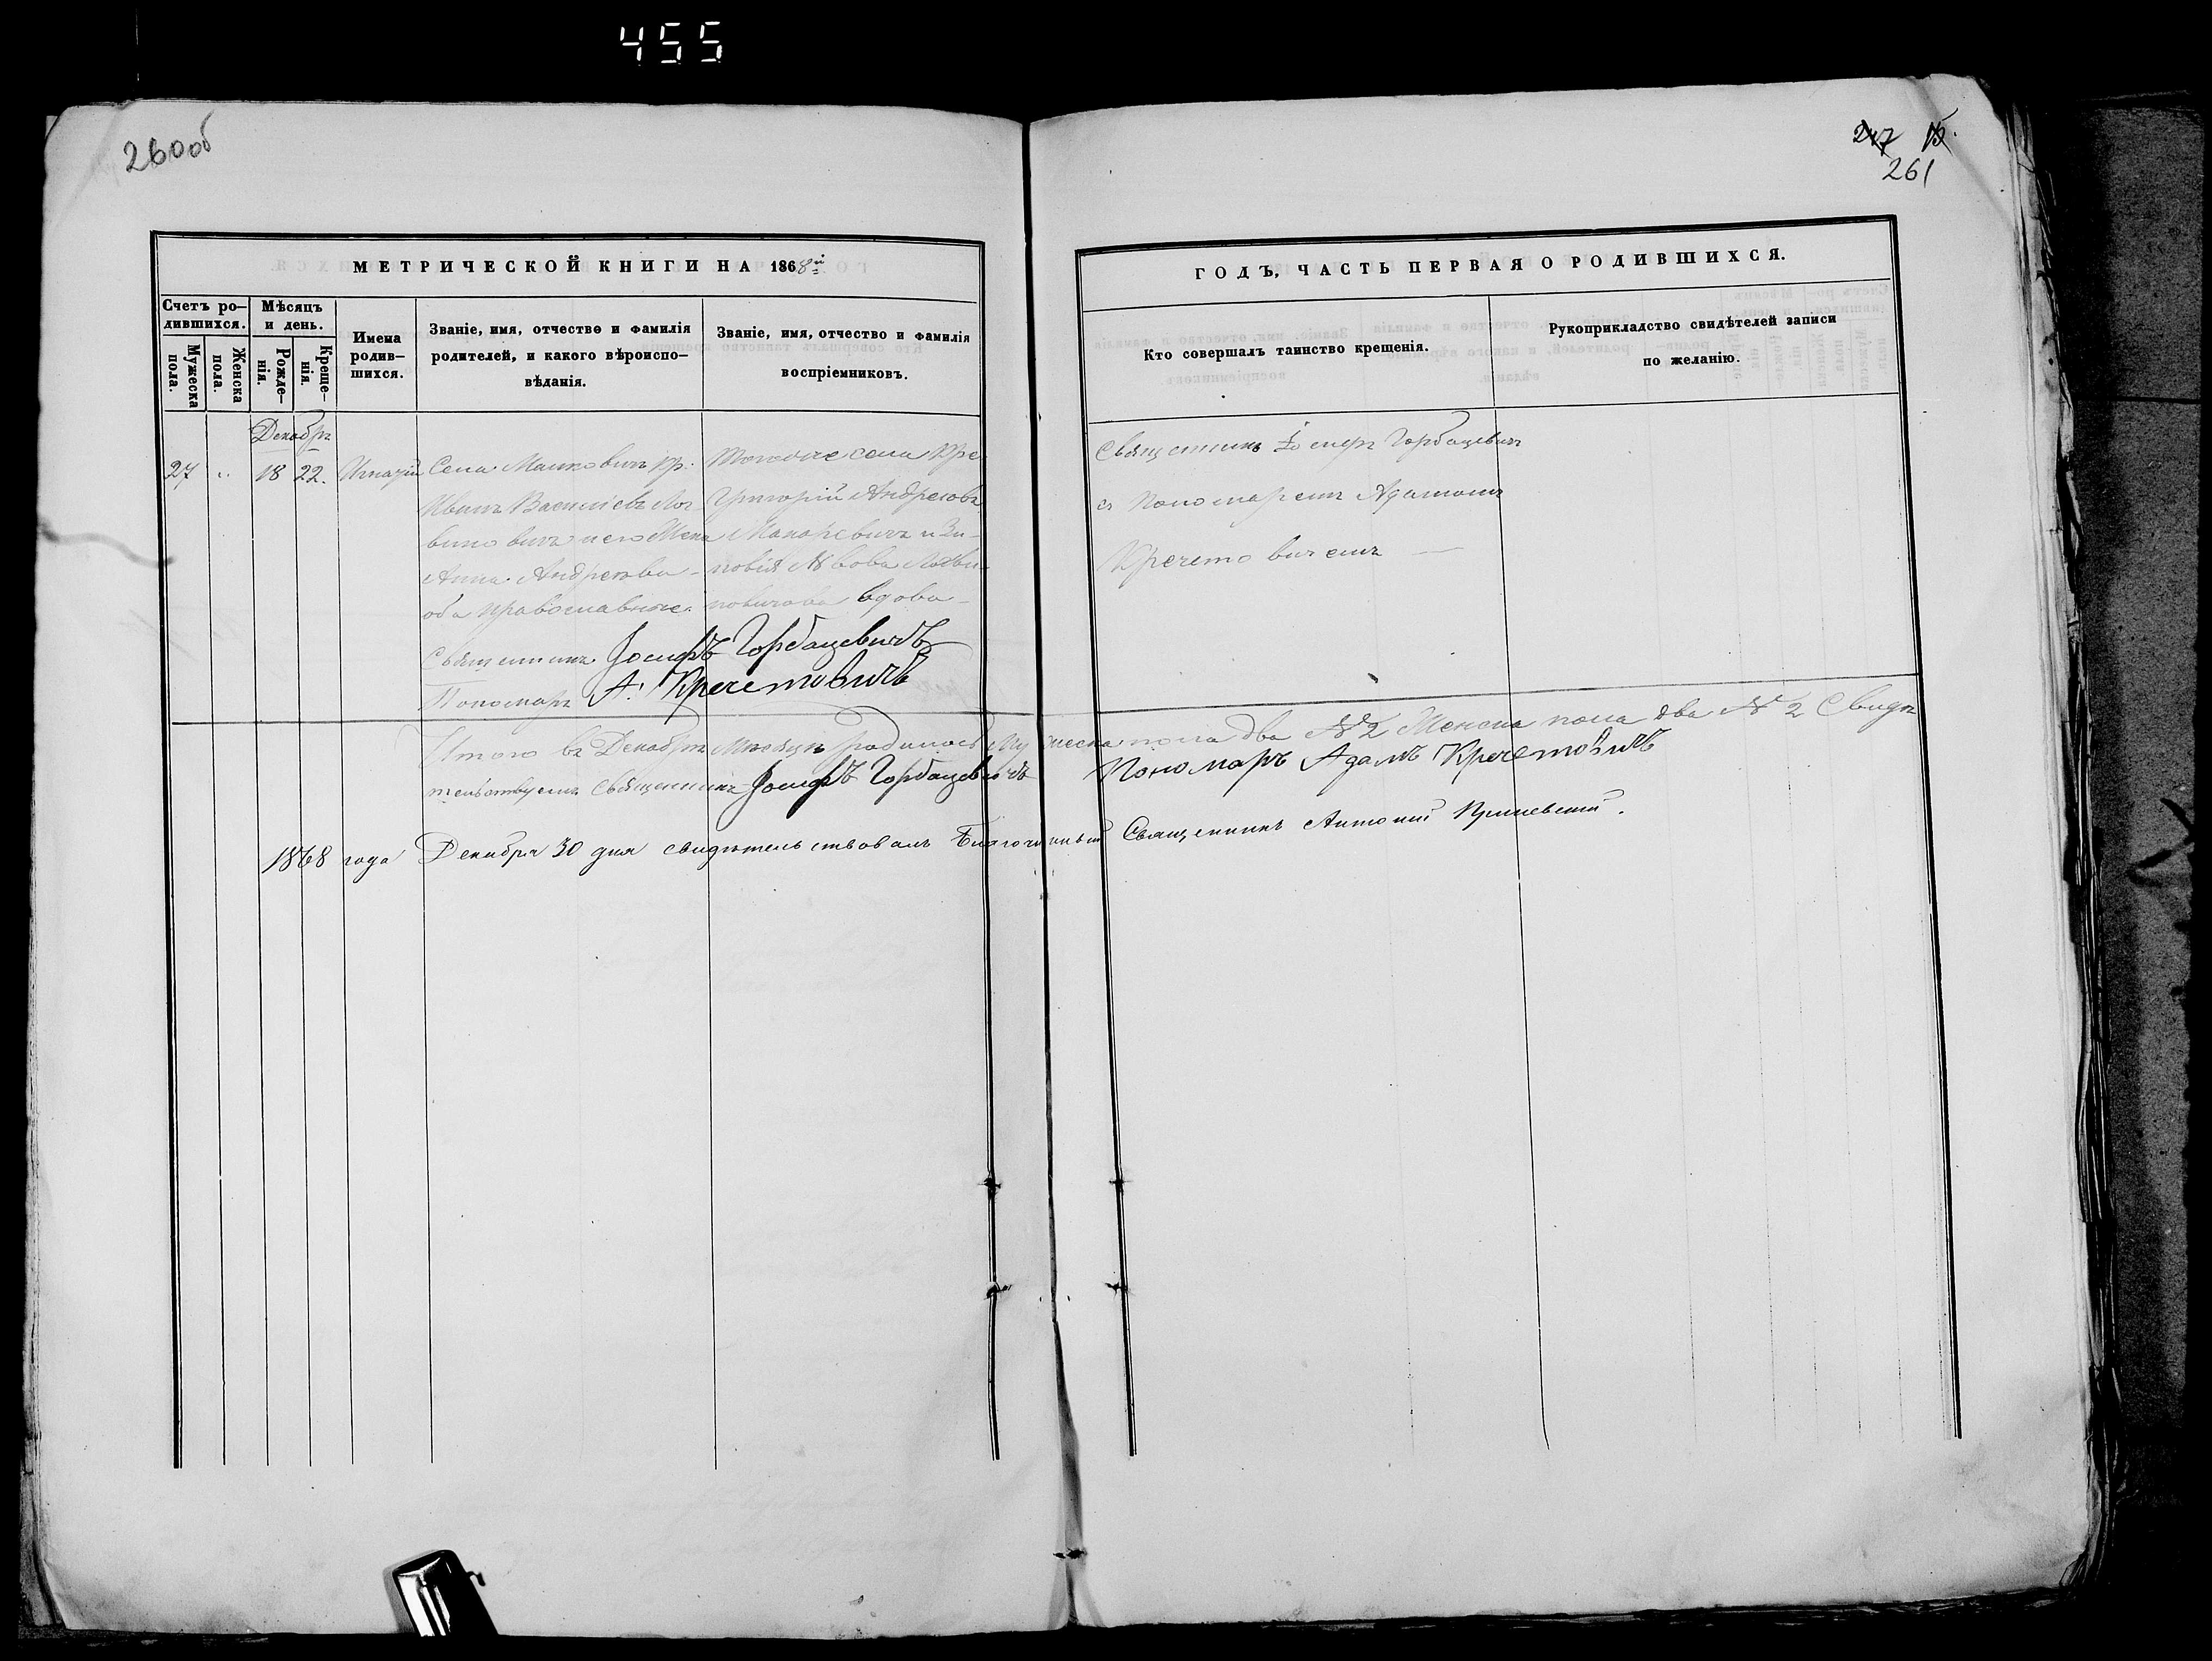 455
260об
247 15.
261
МЕТРИЧЕСКОЙ КНИГИ НА 1868й
ГОДЪ, ЧАСТЬ ПЕРВАЯ О РОДИВШИХСЯ.
Счетъ ро-
дившихся.
Мужеска
пола.
Женска
пола.
Мѣсяцъ
и день.
Рожде-
нія.
Креще-
нія.
Имена
родив-
шихся.
Званіе, имя, отчество и фамилія
родителей, и какого вѣроиспо-
вѣданія.
Званіе, имя, отчество и фамилія
воспріемниковъ.
Кто совершалъ таинство крещенія.
Рукоприкладство свидѣтелей записи
по желанію.
Декабрь
27 „ 18 22. Игнатій
Села Малковичъ кр.
Иванъ Василіевъ Лог
виновичъ и его Жена
Анна Андреева
оба православные.
Тогоже села Кре
Григорій Андреевъ
Макаревичъ и Зи-
новія Львова Логви
новичова вдова
Священникъ Іосифъ Горбацевичъ
съ Пономаремъ Адамомъ
Кречетовичемъ
Священникъ Іосифъ Горбацевичъ
Пономарь А. Кречетовичъ
Итого въ Декабрѣ Мѣсяцѣ родилось Мужеска пола два № 2 Женска пола два № 2 Свидѣ
тельствуемъ Священникъ Іосифъ Горбацевичъ Пономарь Адамъ Кречетовичъ
1868 года Декабря 30 дня свидѣтельствовалъ Благочинный Священникъ Антоній